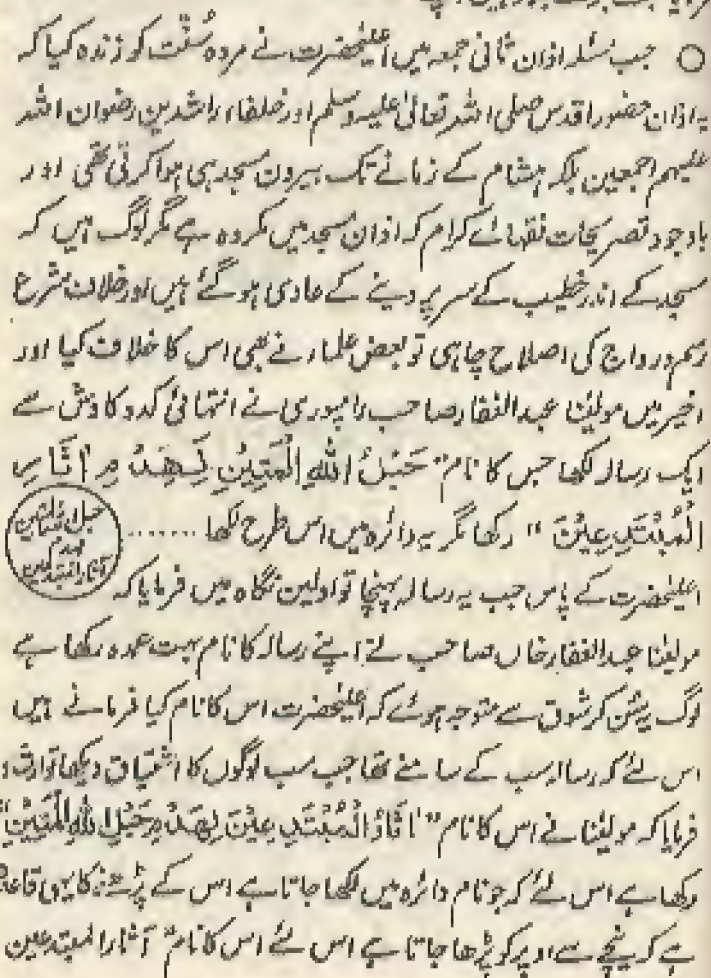 ○ جب مسئلہ اذان ثانی جمعہ میں اعلیٰحضرت نے مردہ سُنّت کو زندہ کیا کہ
یہ اذان حضور اقدس صلی اللہ تعالیٰ علیہ وسلم اور خلفاء راشدین رضوان اللہ
علیہم اجمعین بلکہ ہشام کے زمانے تک بیرون مسجد ہی ہوا کرتی تھی اور
باوجود تصریحات فقہائے کرام کہ اذان مسجد میں مکروہ ہے مگر لوگ ہیں کہ
مسجد کے اندر خطیب کے سر پر دینے کے عادی ہو گئے ہیں اور خلاف شرع
رسم و رواج کی اصلاح چاہی تو بعض علماء نے بھی اس کا خلاف کیا اور
اخیر میں مولیٰنا عبدالغفار صاحب رامپوری نے انتہائی کدو کاوش سے
ایک رسالہ لکھا جس کا نام "حَبْلُ اللّٰهِ الْمَتِيْنِ لِهَدْمِ اٰثَارِ
الْمُبْتَدِعِيْنَ" رکھا مگر یہ دائرہ میں اس طرح لکھا ........
حبل اللہ المتین
لہدم
آثار المبتدعین
اعلیٰحضرت کے پاس جب یہ رسالہ پہنچا تو اولین نگاہ میں فرمایا کہ
مولیٰنا عبدالغفار خاں صاحب نے اپنے رسالہ کا نام بہت عمدہ رکھا ہے
لوگ یہ سُن کر شوق سے متوجہ ہوئے کہ اعلیٰحضرت اس کا نام کیا فرماتے ہیں
اس لئے کہ رسالہ سب کے سامنے تھا جب سب لوگوں کا اشتیاق دیکھا تو
فرمایا کہ مولیٰنا نے اس کا نام "اٰثَارُ الْمُبْتَدِعِيْنَ لِهَدْمِ حَبْلِ اللّٰهِ الْمَتِيْنِ"
رکھا ہے اس لئے کہ جو نام دائرہ میں لکھا جاتا ہے اس کے پڑھنے کا یہی قاعدہ
ہے کہ نیچے سے اوپر کو پڑھا جاتا ہے اس لئے اس کا نام "آثار المبتدعین